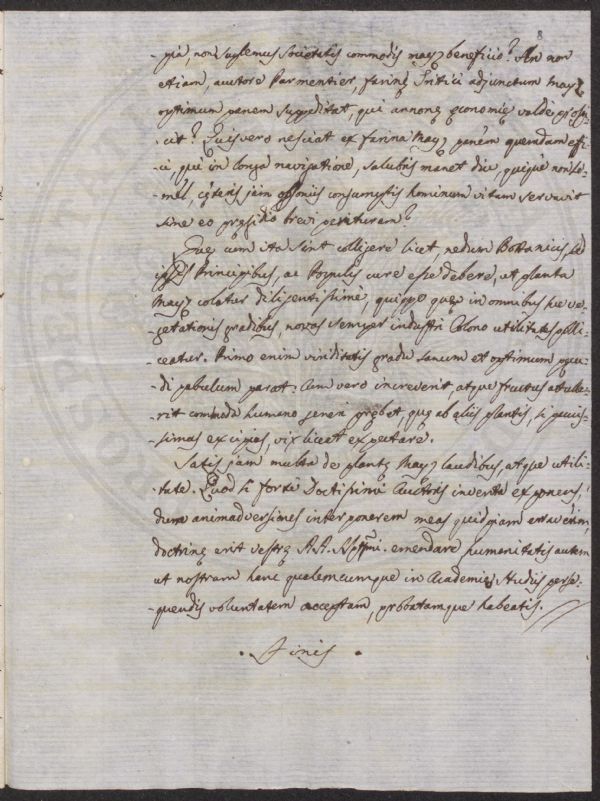 8
pia, non suplemus societatis commodis mayz beneficio? An non
etiam, auctore Parmentier, farinę Tritici adjunctum mayz
optimum panem suppeditat, qui annonę economię valdè prospi-
-cit? Quis vero nesciat ex farina Mayz panem quemdam effi-
-ci, qui in longa navigatione, salubris manet diu, quique non se-
-mel, cęteris jam opsoniis consumptis hominum vitam servavit
sine eo pręsidio brevi perituram?
Quę cum ita sint colligere licet, nedum Botanicis sed
ipsis Principibus, ac Populis curę esse debere, ut planta
Mayz colatur diligentissimè, quippe quę in omnibus suę ve-
-getationis gradibus, novas semper industri Colono utilitates polli-
-ceatur. Primo enim viriditatis gradu sanum et optimum pecu-
-di pabulum parat: Cum vero increverit atque fructus attulle-
-rit commoda humano generi prębet, quę ab aliis plantis, si paucis-
-simas excipias, vix liceat expectare.
Satis jam multa de plantę Mayz laudibus, atque utili-
-tate. Quod si fortè Doctissimi Auctoris inventa exponens,
dum animadversiones interponerem meas quidpiam erraverim,
doctrinę erit vestrę A.A. emendare humanitatis autem
ut nostram hanc qualemcumque in Academię studiis perse-
-quendis voluntatem acceptam, probatamque habeatis.
Finis